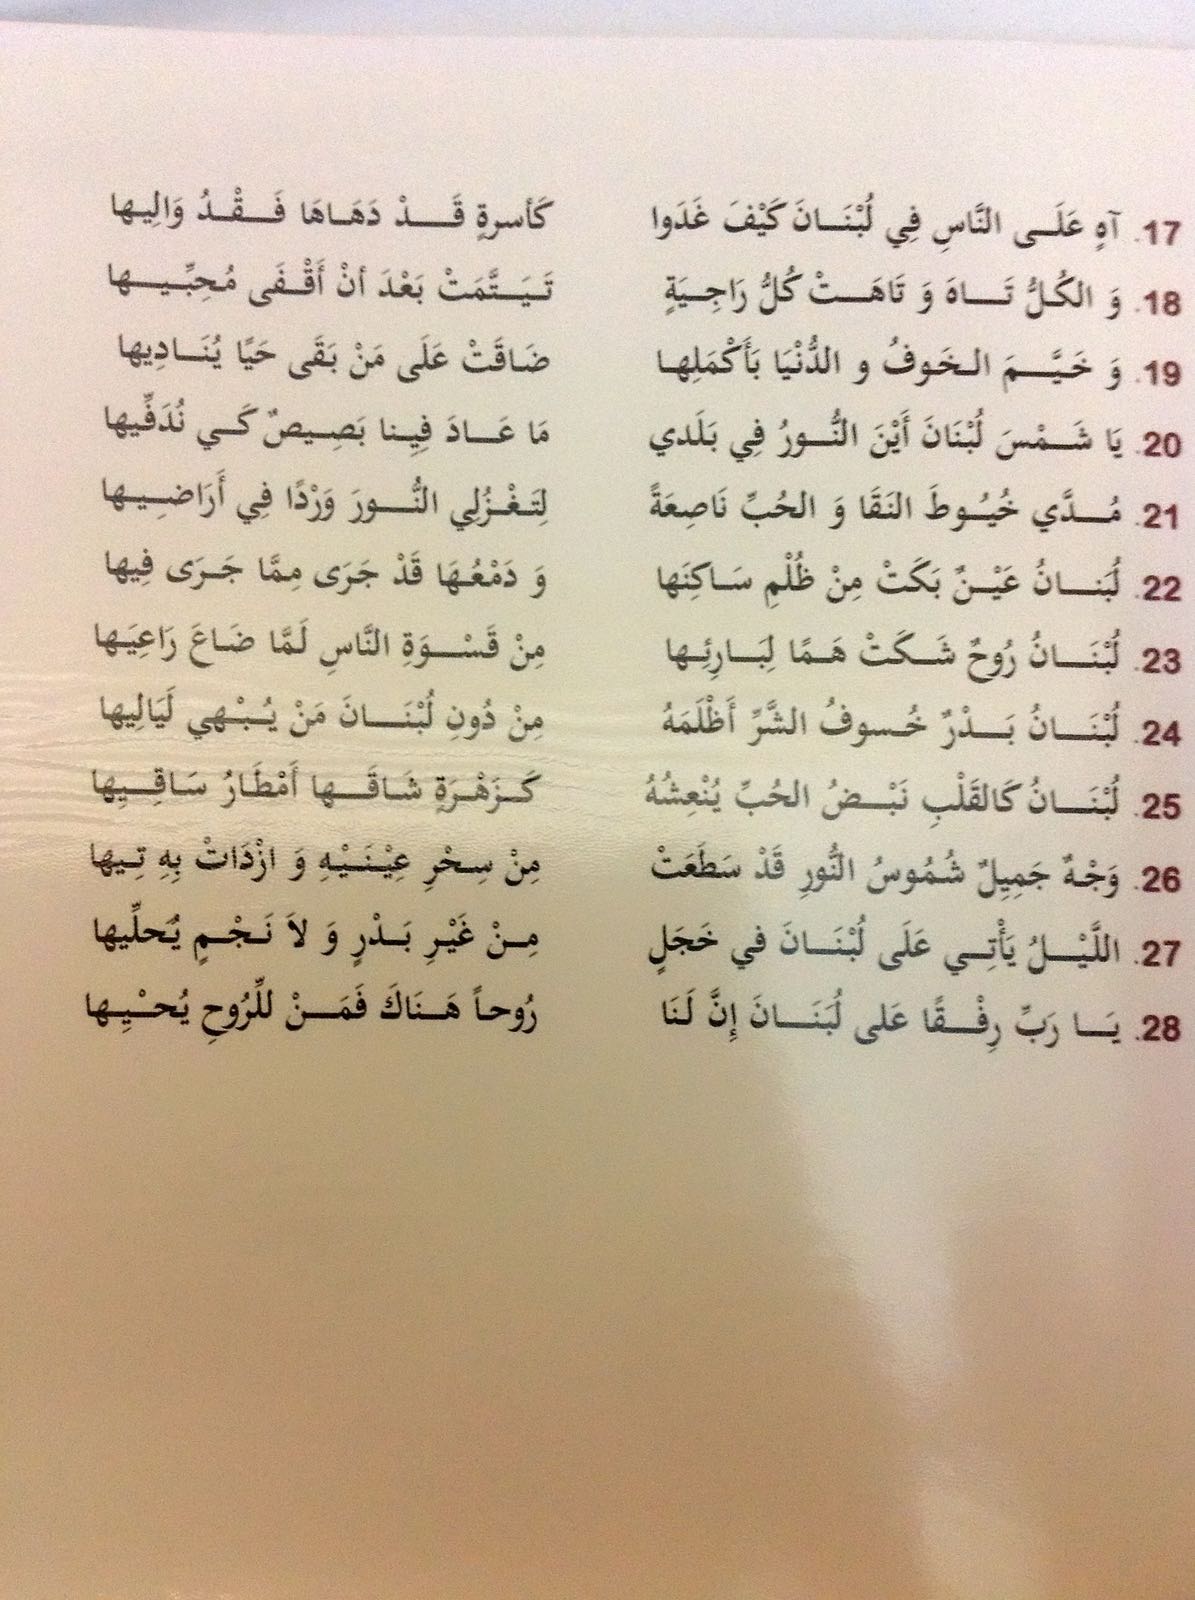 17. آهٍ عَلَى النَّاسِ فِي لُبْنَانَ كَيْفَ غَدَوا كَأسرةٍ قَدْ دَهَاهَا فَقْدُ وَالِيها
18. وَ الكُلُّ تَاهَ وَ تَاهَتْ كُلُّ رَاجِيَةٍ تَيَتَّمَتْ بَعْدَ أنْ أَقْفَى مُحِبِّيها
19. وَ خَيَّمَ الخَوفُ و الدُّنْيَا بَأَكْمَلِها ضَاقَتْ عَلَى مَنْ بَقَى حَيًا يُنَادِيها
20. يَا شَمْسَ لُبْنَانَ أَيْنَ النُّورُ فِي بَلَدي مَا عَادَ فِيِنا بَصِيصٌ كَي نُدَفِّيها
21. مُدَّي خُيُوطَ النَقَا وَ الحُبِّ نَاصِعَةً لِتَغْزُلِي النُّورَ وَرْدًا فِي أَرَاضِيها
22. لُبنانُ عَيْنٌ بَكَتْ مِنْ ظُلْمِ سَاكِنَها وَ دَمْعُهَا قَدْ جَرَى مِمَّا جَرَى فِيها
23. لُبْنَانُ رُوحٌ شَكَتْ هَمًا لِبَارِئِها مِنْ قَسْوَةِ النَّاسِ لَمَّا ضَاعَ رَاعِيَها
24. لُبْنَانُ بَدْرٌ خُسوفُ الشَّرِّ أَظْلَمَهُ مِنْ دُونِ لُبْنَانَ مَنْ يُبْهي لَيَالِيها
25. لُبْنَانُ كَالقَلْبِ نَبْضُ الحُبِّ يُنْعِشُهُ كَزَهْرَةٍ شَاقَها أَمْطَارُ سَاقِيِها
26. وَجْهٌ جَمِيِلٌ شُمُوسُ النُّورِ قَدْ سَطَعَتْ مِنْ سِحْرِ عِيْنَيْهِ وَ ازْدَاتْ بِهِ تِيها
27. اللَّيْلُ يَأْتِي عَلَى لُبْنَانَ في خَجَلٍ مِنْ غَيْرِ بَدْرٍ وَ لاَ نَجْمٍ يُحلِّيها
28. يَا رَبِّ رِفْقًا عَلى لُبَنَانَ إِنَّ لَنَا رُوحاً هَنَاكَ فَمَنْ للِّرُوحِ يُحْيِها